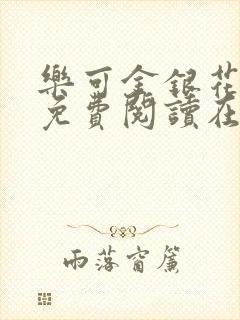 樂可金銀花
免費閱讀在
雨落窗簾